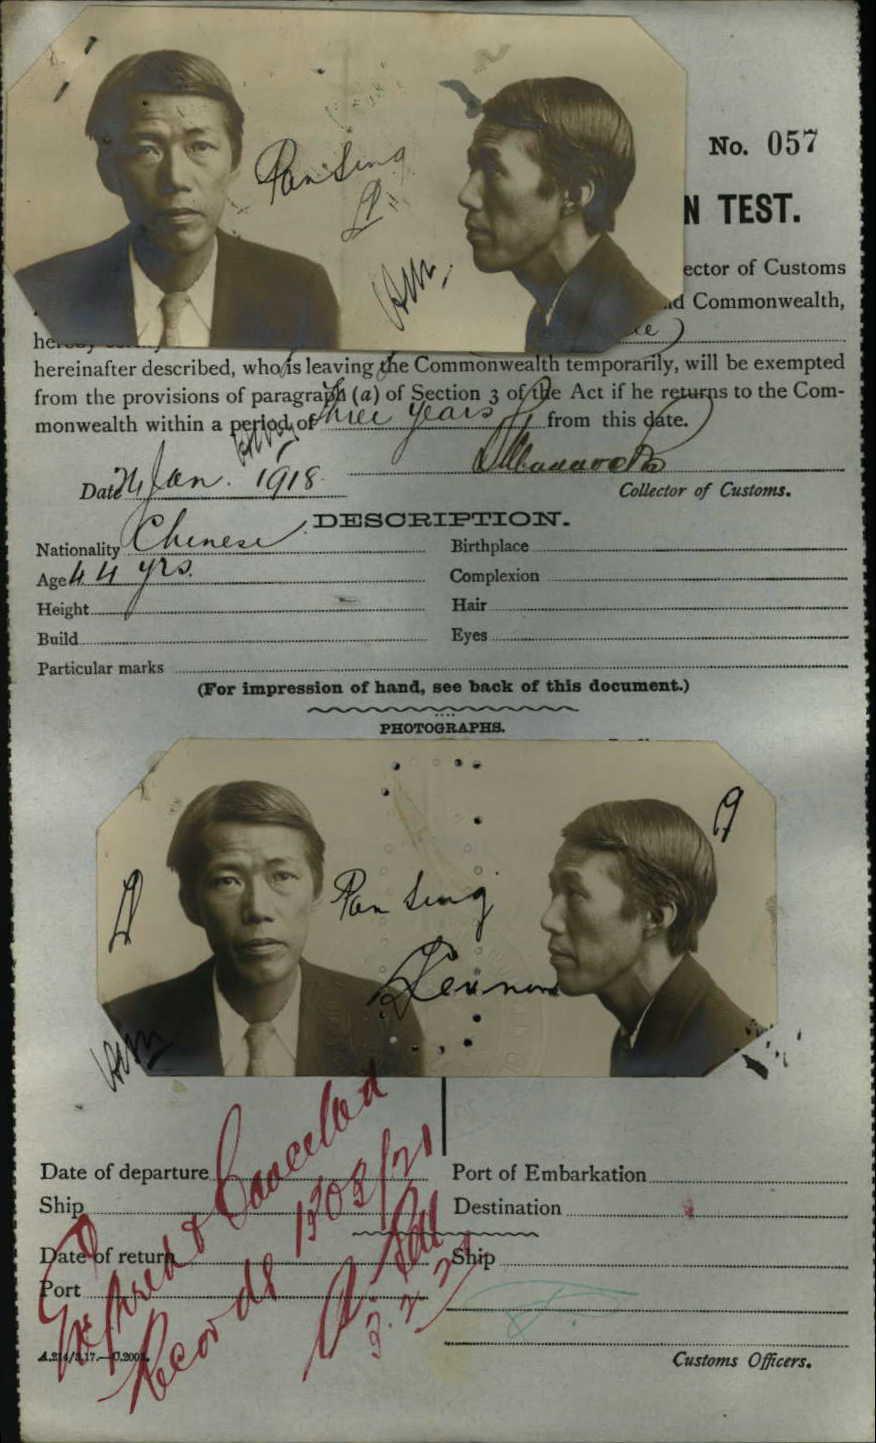 No. 057
N TEST.
Pan Sing
ector of Customs
d Commonwealth,
hereinafter described, who is leaving the Commonwealth temporarily, will be exempted
from the provisions of paragraph (a) of Section 3 of the Act if he returns to the Com-
monwealth within a period of three years from this date.
Date Jan. 1918
Collector of Customs.
DESCRIPTION.
Nationality Chinese
Birthplace
Age 44 yrs.
Complexion
Height
Hair
Build
Eyes
Particular marks
(For impression of hand, see back of this document.)
PHOTOGRAPHS.
Pan Sing
Date of departure
Port of Embarkation
Ship
Destination
Date of return
Ship
Port
& Cancelled
Records 1308/21
3.2.21
Customs Officers.